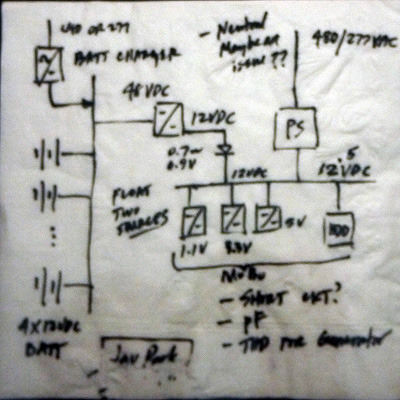 480 OR 277
BATT CHARGER
- Neutral
Maybe an
issue??
480/277VAC
48VDC
12VDC
PS
0.7~
0.9V
12VDC
12.5
VDC
FLOAT
TWO
STAGES
1.1V
3.3V
5V
HDD
MOBO
- SHORT CKT?
- PF
- THD FOR Generator
4X12VDC
BATT
Jay Park